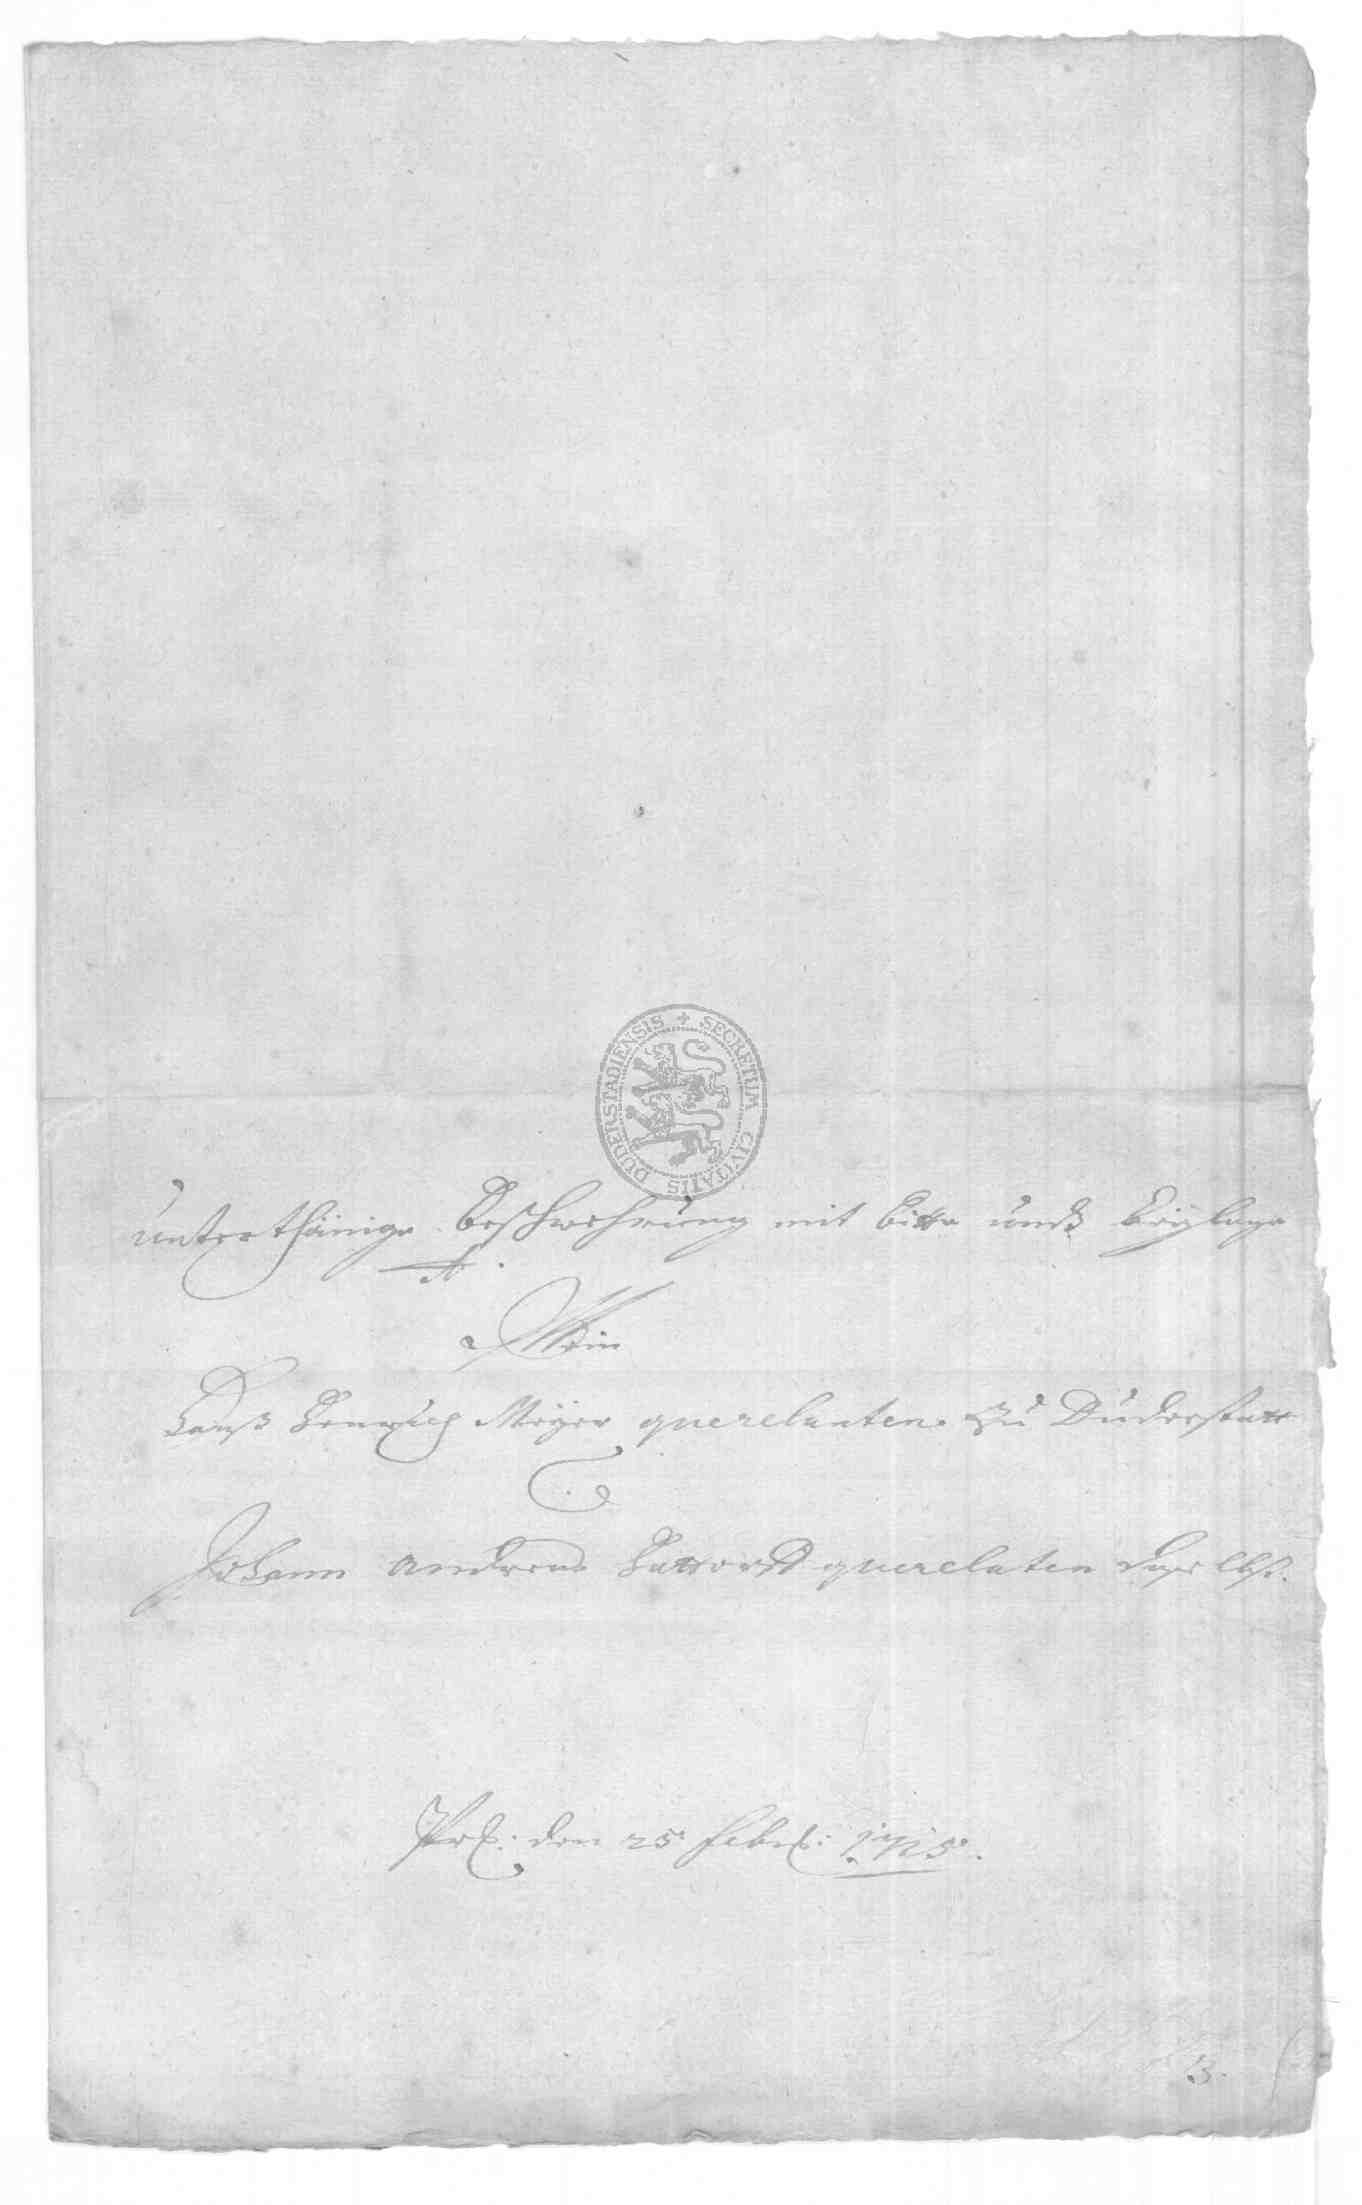 SECRETUM CIVITATIS DUDERSTADIENSIS
unterthänige Beschwehrung mit bitte undt beylage
A.
Mein
Hanß Henrich Meÿer querelanten zu Duderstatt
C.
Johann Andreas querelaten daselbst.
Prs: den 25 febr: 1715.
B.